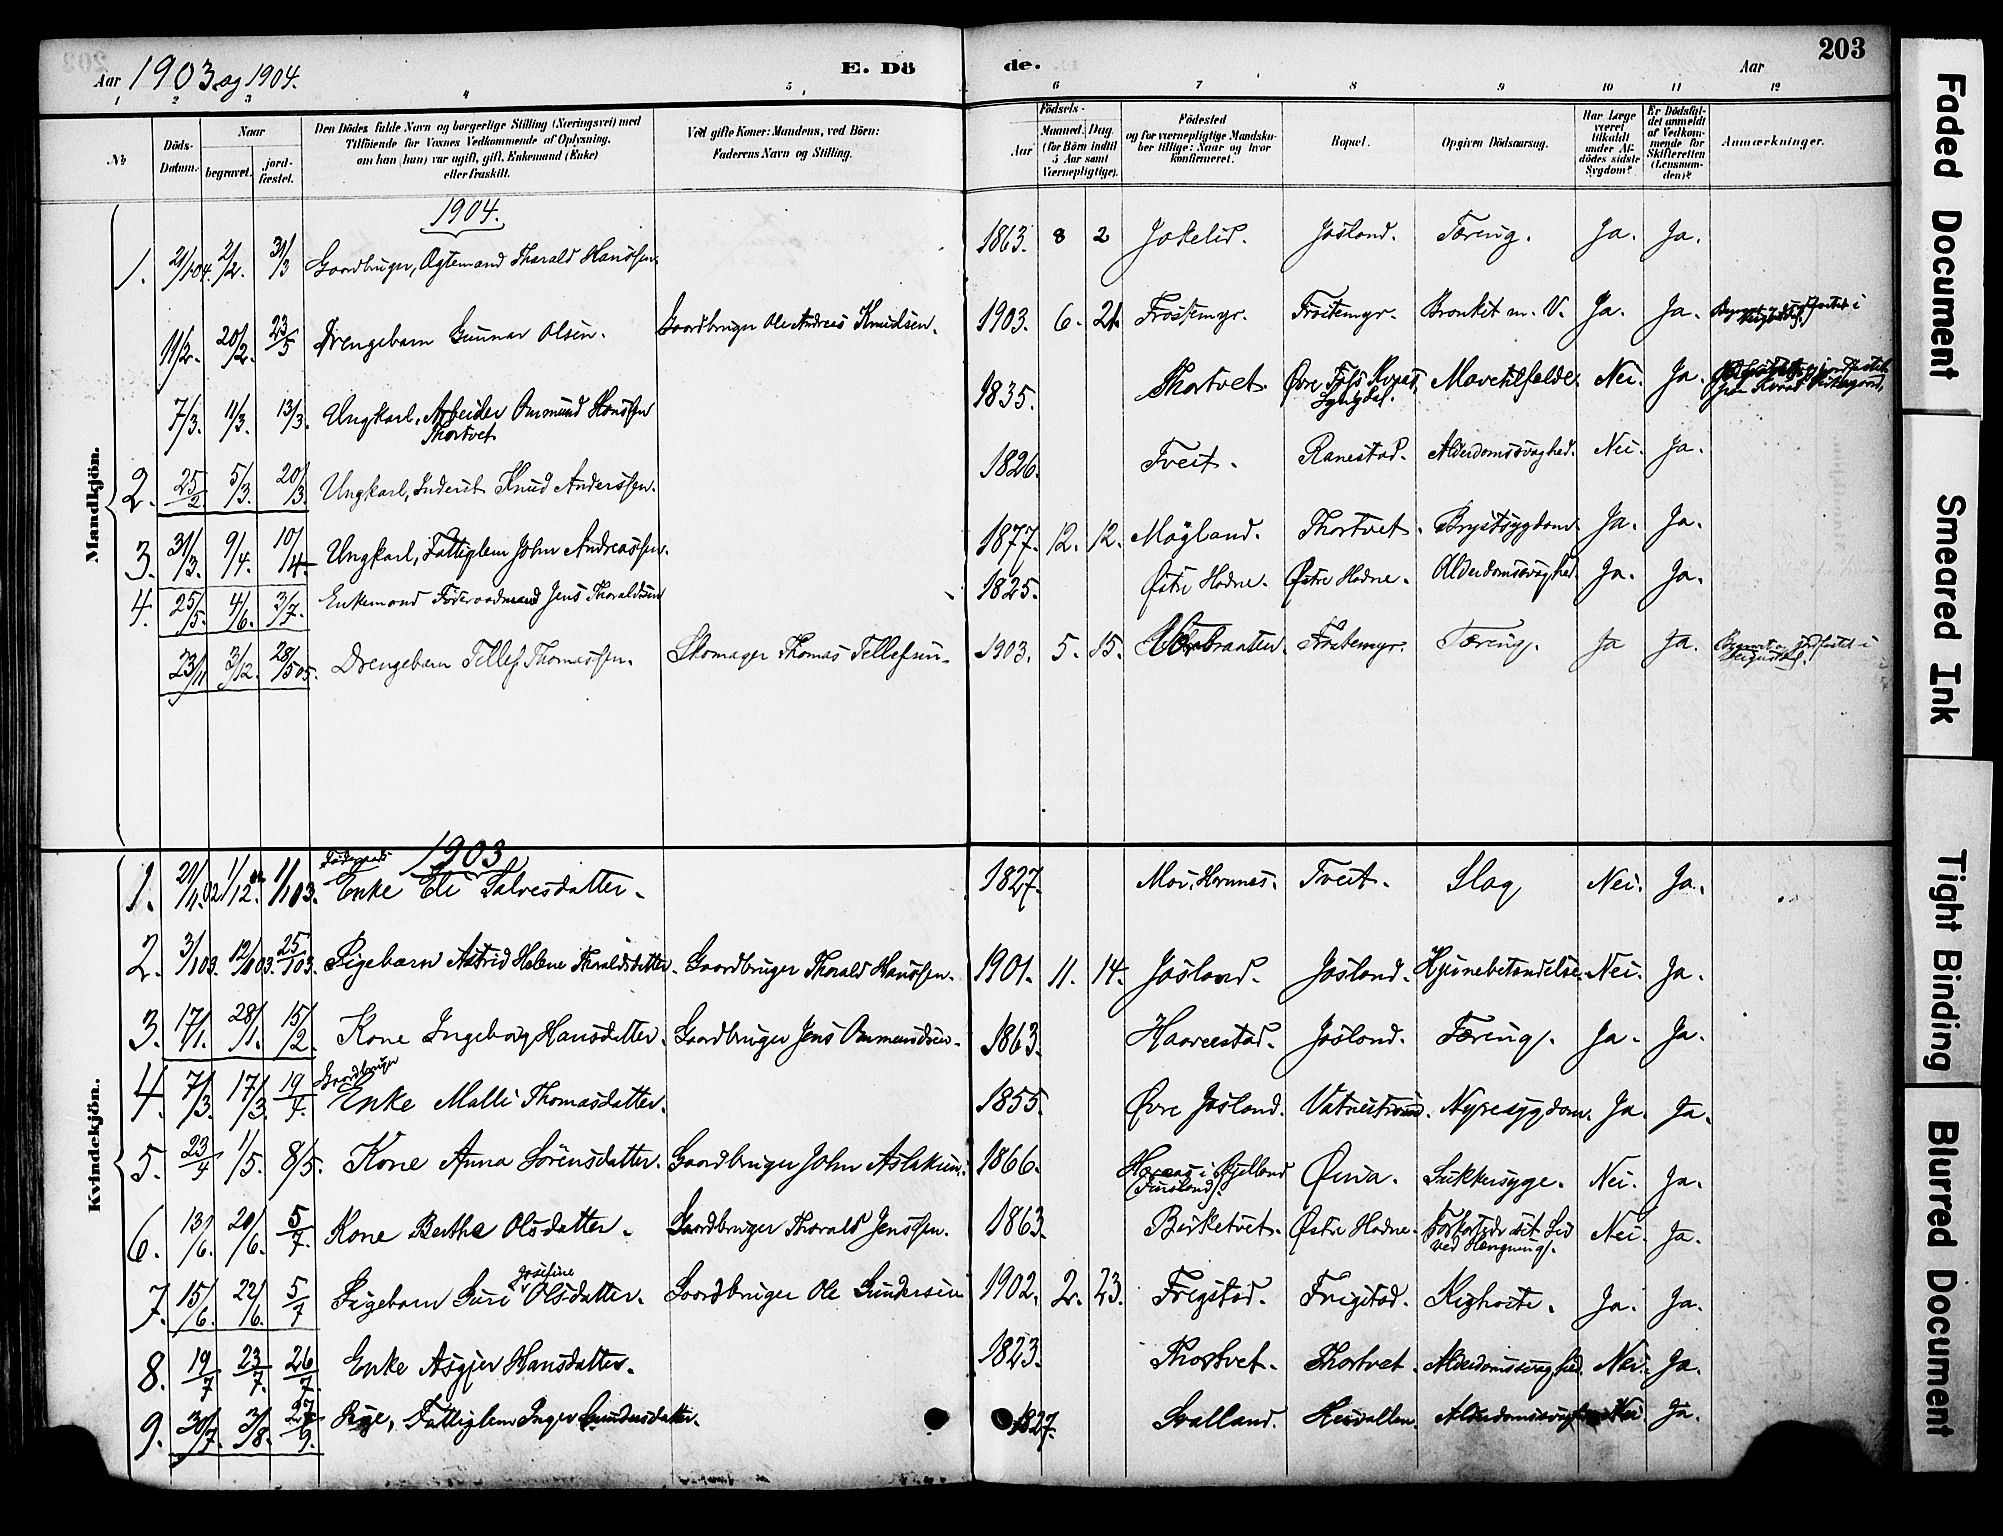 203
Aar 1903 og 1904. E. Dö de. Aar
1 2 3 4 5 6 7 8 9 10 11 12
No
Döds-Datum.
Naar
begravet. jordfæstet.
Den Dödes fulde Navn og borgerlige Stilling (Næringsvei) med
Tilföiende for Voxnes Vedkommende af Oplysning,
om han (hun) var ugift, gift, Enkemand (Enke)
eller fraskilt.
Ved gifte Koner: Mandens, ved Börn:
Faderens Navn og Stilling.
Födsels-
Aar
Maaned. Dag.
(for Börn indtil
5 Aar samt
Værnepligtige).
Födested
og for værnepligtige Mandskaber tillige: Naar og hvor
konfirmeret.
Bopæl.
Opgiven Dödsaarsag.
Har Læge
været
tilkaldt
under Afdödes sidste
Sygdom?
Er Dödsfaldet anmeldt
af Vedkommende for
Skifteretten
(Lensmanden)?
Anmærkninger.
Mandkjön.
1904.
1. 21/1 04. 2/2. 31/3 Gaardbruger, Ægtemand Tharald Hanssen. 1863. 8 2 Jokelid. Josland. Tæring. Ja. Ja.
11/2. 20/2. 23/5 Drengebarn Gunnar Olsen. Gaardbruger Ole Andreas Knudsen. 1903. 6. 21. Frøstemyr. Frøitemyr. Bronkit m. V. Ja. Ja.
7/3. 11/3. 13/3. Ungkarl, Arbeider Ommund Hanssen Thortvet 1835. Thortvet. Øvre Foss Kvaas Lyngdal. Mavetilfælde. Nei. Ja.
2. 25/2. 5/3. 20/3. Ungkarl, Inderst Knud Anderssen. 1826. Tveit. Ranestad. Alderdomssvaghed. Nei. Ja.
3. 31/3. 9/4. 10/4. Ungkarl, Fattiglem John Andreassen. 1877. 12. 12. Møgland. Thortvet. Brystsygdom Ja. Ja.
4. 25/5. 4/6. 3/7. Enkemand Föderaadmand Jens Tharaldsen 1825. Østre Hodne. Østre Hodne. Alderdomssvaghed. Ja. Ja.
23/11 3/12. 28/5 05. Drengebarn Tellef Thomassen. Skomager Thomas Tellefsen. 1903. 5. 15. Frøitemyr. Tæring. Ja Ja.
Kvindekjön.
1903
1. 21/11 02 1/12. 1/1 03. Föderaads Enke Eli Salvesdatter. 1827. Moi, Hornnes. Tveit. Slag Nei. Ja.
2. 3/1 03. 12/1 03. 25/1 03. Pigebarn Astrid Helene Tharaldsdatter. Gaardbruger Tharald Hanssen. 1901. 11. 14. Josland. Josland. Hjernebetændelse. Nei. Ja.
3. 17/1. 28/1. 15/2. Kone Ingeborg Hansdatter. Gaardbruger Jens Ommundsen. 1863. Haarestad. Josland. Tæring. Ja. Ja.
4. 7/3. 17/3. 19/4. Gaardbruger Enke Malli Thomasdatter. 1855. Øvre Josland. Vatnestrømd. Nyresygdom. Ja. Ja.
5. 23/4 1/5. 8/5. Kone Anna Sörensdatter. Gaardbruger John Aslaksen. 1866. i Bjelland (Finsland). Nei. Ja. Sukkersyge.
6. 13/6. 20/6. 5/7. Kone Berthe Olsdatter. Gaardbruger Tharald Jenssen. 1863. Birketvet. Østre Hodne. Forkortede sit Liv ved Hængning. Nei. Ja.
7. 15/6. 22/6. 5/7 Pigebarn Guri Josefine Olsdatter. Gaardbruger Ole Gundersen 1902. 2. 23. Frigstad. Frigstad. Kighoste. Ja. Ja.
8. 19/7 23/7. 26/7. Enke Asgjer Hansdatter. 1823. Thortvet. Thortvet. Alderdomssvaghed. Nei. Ja.
9. 30/7. 3/8. 27/9. Pige, Fattiglem Inger Gundersdatter. 1827. Nei. Ja.
Faded Document
Smeared Ink
Tight Binding
Blurred Document